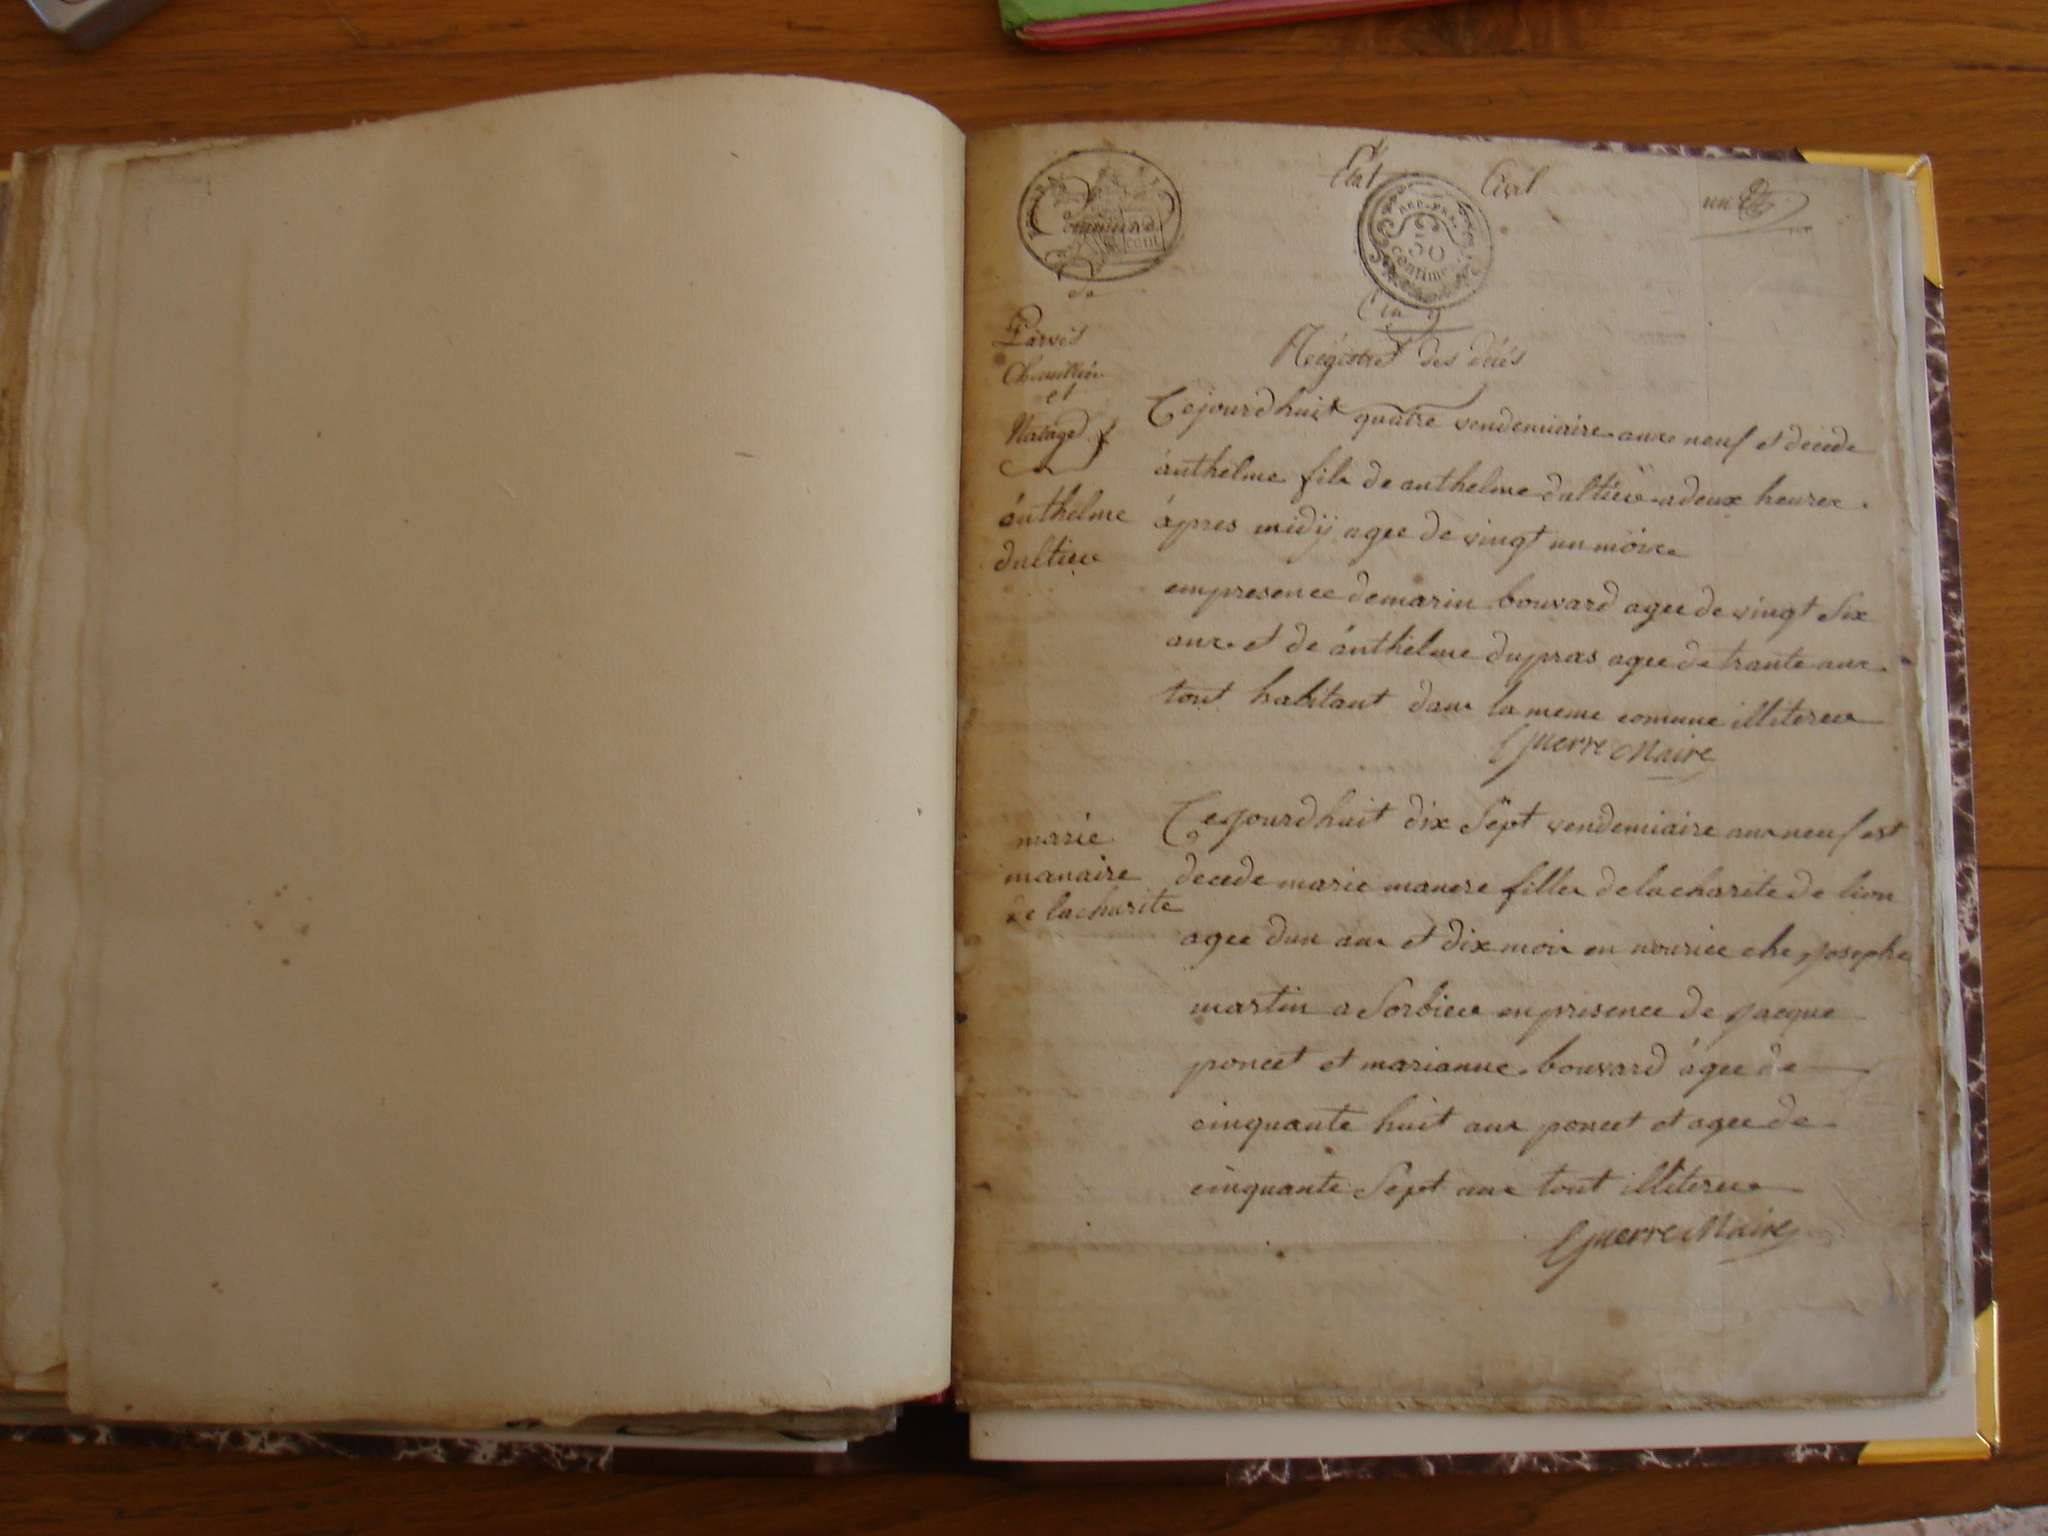 Etat Civil
un
Commune
50
centime
de
Parves
Chemillieu
et
Natage
An 9
Régistre des décés
anthelme
dultieu
Cejourdhuit quatre vendemiaire anx neuf et décéde
anthelme fils de anthelme dultieu a deux heures
apres midÿ agee de vingt un moix
empresence demarin bouvard agee de vingt Six
anx et de ánthelme dupras agee de trante anx
tout habitant dans la meme comune illiterex
Guerre Maire
marie
manaire
de lacharite
Cejourdhuit dix Sept vendemiaire anx neuf est
decede marie manere filles de lacharite de lion
agee dun anx et dix mois en nourice che josephe
martin a Sorbieu en presence de jacque
poncet et marianne bouvard ágee de
cinquante huit anx poncet et agee de
cinquante Sept anx tout illiterex
Guerre Maire